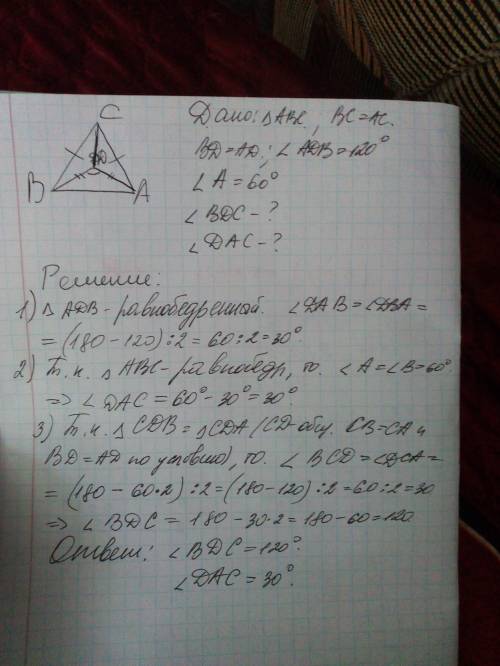 C
D
B
A
Дано: △ABC, BC=AC.
BD=AD; ∠ADB=120°
∠A=60°
∠BDC-?
∠DAC-?
Решение:
1) △ADB-равнобедренный. ∠DAB=∠DBA=
=(180-120):2=60:2=30°.
2) Т.к. △ABC-равнобедр, то. ∠A=∠B=60°.
⇒ ∠DAC=60°-30°=30°
3) Т.к. △CDB=△CDA (CD-общ. CB=CA и
BD=AD по условию), то. ∠BCD=∠DCA=
=(180-60·2):2=(180-120):2=60:2=30
⇒ ∠BDC=180-30·2=180-60=120
Ответ: ∠BDC=120°.
∠DAC=30°.